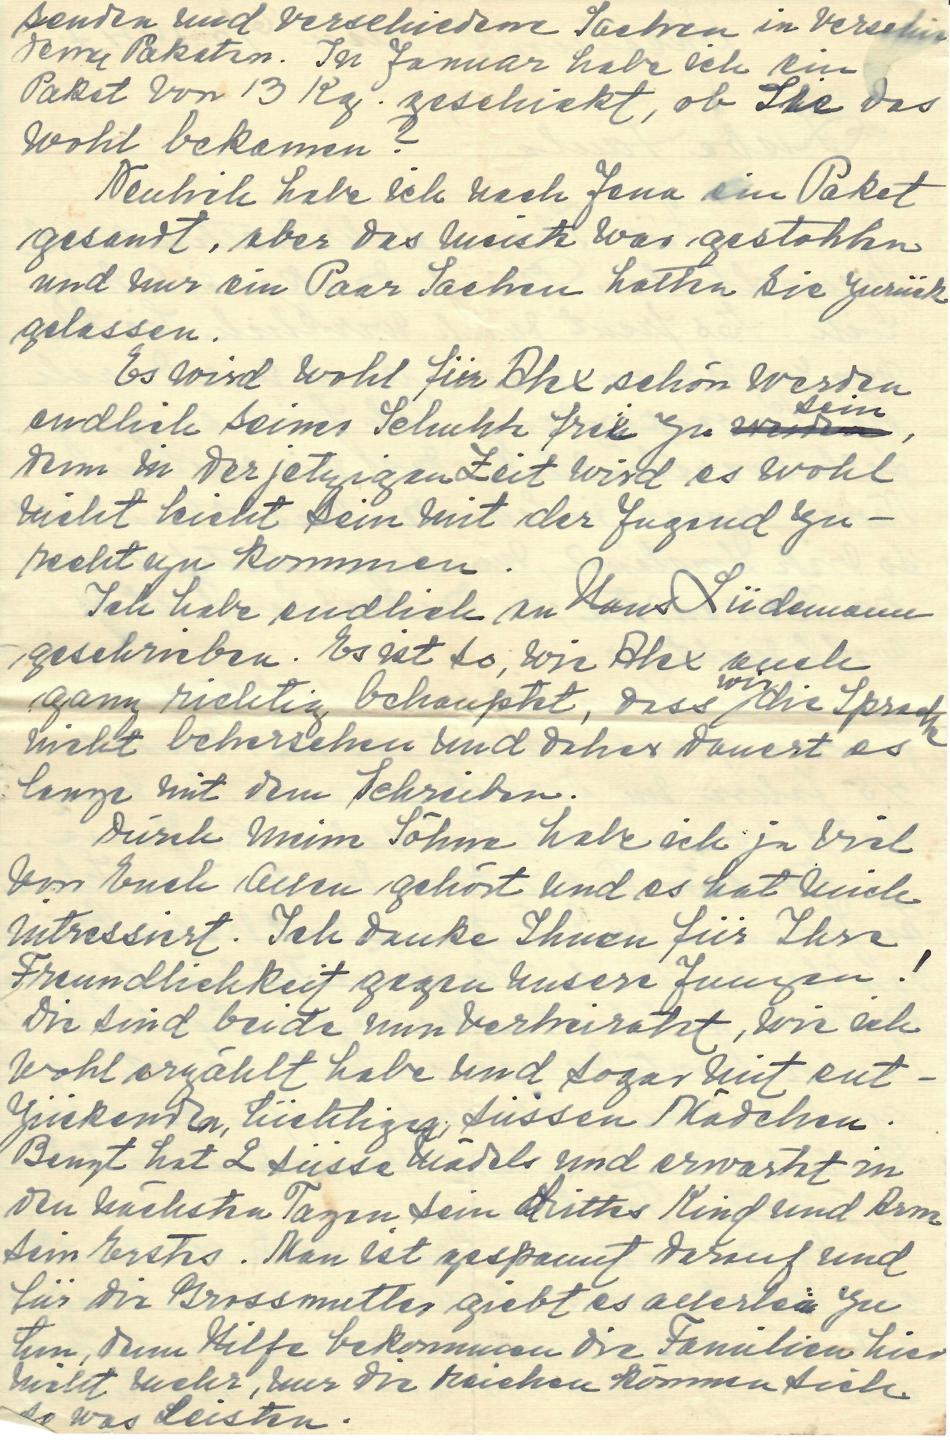 senden und verschiedene Sachen in verschie
dene Paketen. In Januar habe ich ein
Paket von 13 Kg. geschickt, ob Sie das
wohl bekamen?
Neulich habe ich nach Jena ein Paket
gesandt, aber das meiste war gestohlen
und nur ein Paar Sachen hatten sie zurück
gelassen.
Es wird wohl für Alex schön werden
endlich seiner Schuhle frei zu sein werden,
denn in der jetzigen Zeit wird es wohl
nicht leicht sein mit der Jugend zu-
recht zu kommen.
Ich habe endlich an Hans Lüdemann
geschrieben. Es ist so, wie Alex auch
ganz richtig behauptet, dass wir die Sprache
nicht beherschen und daher dauert es
lange mit dem Schreiben.
Durch meine Söhne habe ich ja viel
von Euch Allen gehört und es hat mich
intressiert. Ich danke Ihnen für Ihre
Freundlichkeit gegen unsere Jungen!
Die sind beide nun verheiratet, wie ich
wohl erzählt habe und sogar mit ent-
zückenden, tüchtigen, süssen Mädchen.
Bengt hat 2 süsse Mädels und erwartet in
den nächsten Tagen sein drittes Kind und Arne
sein Erstes. Man ist gespannt darauf und
für die Grossmutter giebt es allerlei zu
tun, denn Hilfe bekommen die Familien hier
nicht mehr, nur die reichen können sich
so was leisten.